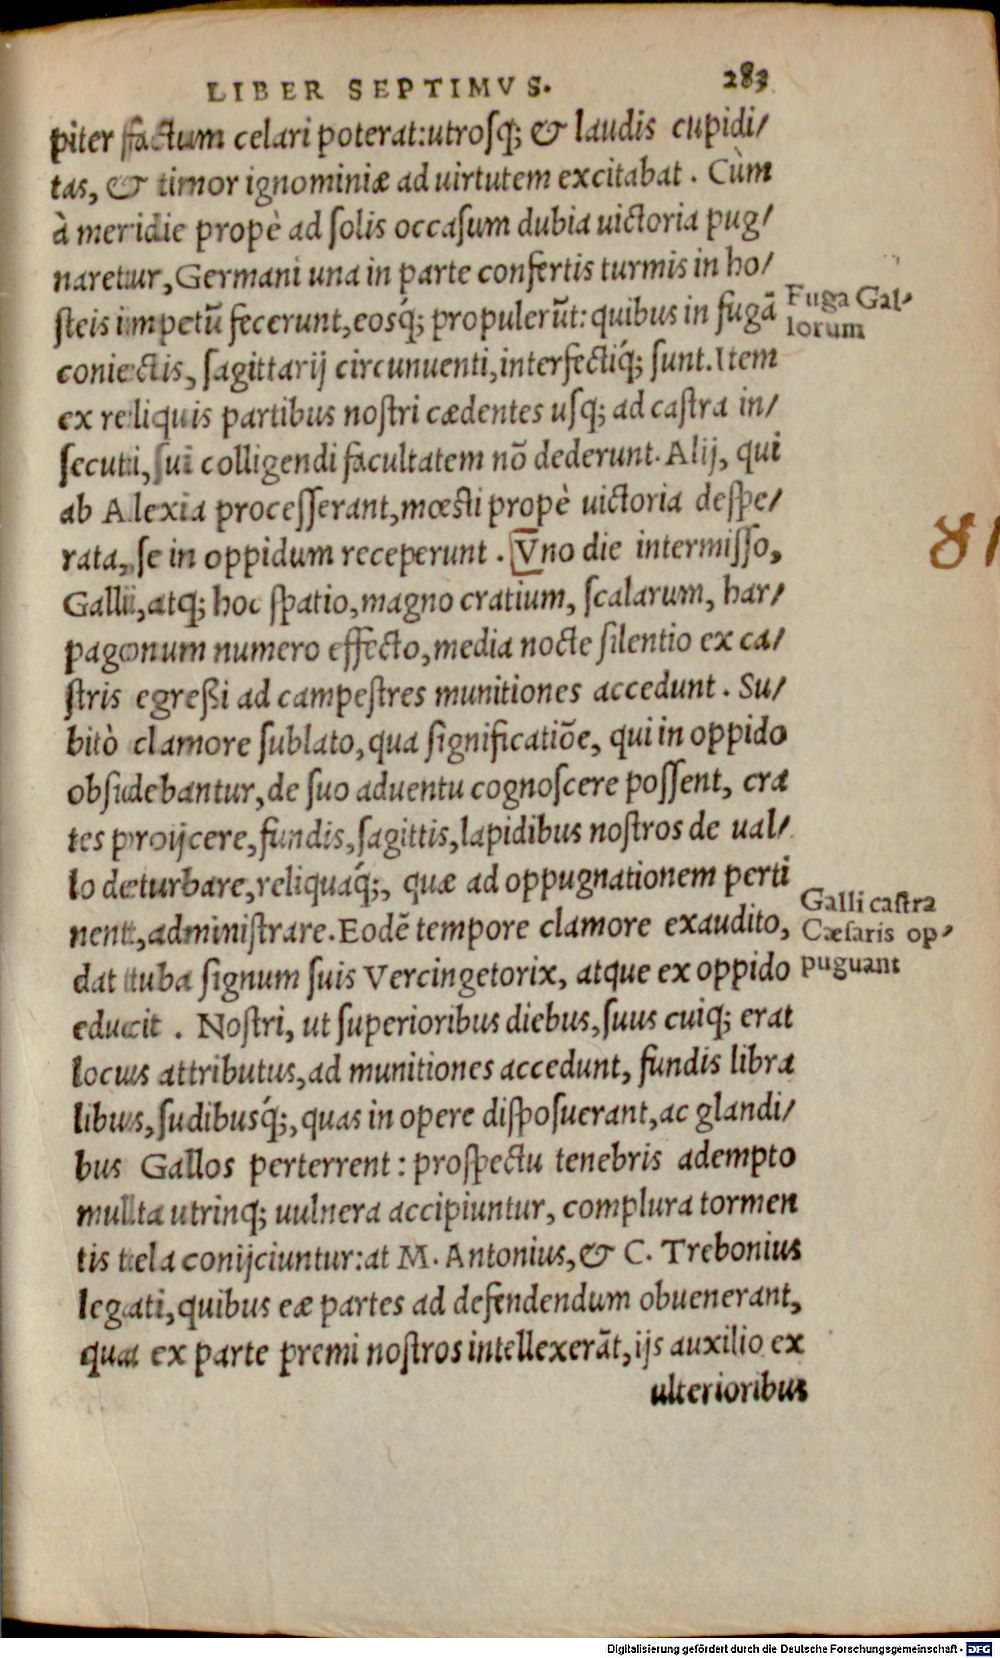 LIBER SEPTIMVS. 283
piter factum celari poterat: utrosq; & laudis cupidi/
tas, & timor ignominiæ ad uirtutem excitabat. Cùm
à meridie propè ad solis occasum dubia uictoria pug/
naretur, Germani una in parte confertis turmis in ho/
steis impetū fecerunt, eosq́; propulerūt: quibus in fugā
coniectis, sagittarij circunuenti, interfectiq́; sunt. Item
ex reliquis partibus nostri cædentes usq; ad castra in/
secuti, sui colligendi facultatem nō dederunt. Alij, qui
ab Alexia processerant, mœsti propè uictoria despe/
rata, se in oppidum receperunt. Vno die intermisso,
Galli, atq; hoc spatio, magno cratium, scalarum, har/
pagonum numero effecto, media nocte silentio ex ca/
stris egreßi ad campestres munitiones accedunt. Su/
bitò clamore sublato, qua significatiōe, qui in oppido
obsidebantur, de suo aduentu cognoscere possent, cra
tes proijcere, fundis, sagittis, lapidibus nostros de ual/
lo deturbare, reliquaq́;, quæ ad oppugnationem perti
nent, administrare. Eodē tempore clamore exaudito,
dat tuba signum suis Vercingetorix, atque ex oppido
educit. Nostri, ut superioribus diebus, suus cuiq; erat
locus attributus, ad munitiones accedunt, fundis libra
libus, sudibusq́;, quas in opere disposuerant, ac glandi/
bus Gallos perterrent: prospectu tenebris adempto
multa utrinq; uulnera accipiuntur, complura tormen
tis tela conijciuntur: at M. Antonius, & C. Trebonius
legati, quibus eæ partes ad defendendum obuenerant,
qua ex parte premi nostros intellexerāt, ijs auxilio ex
ulterioribus
Fuga Gal-
lorum
81
Galli castra
Cæsaris op-
puguant
Digitalisierung gefördert durch die Deutsche Forschungsgemeinschaft - DFG